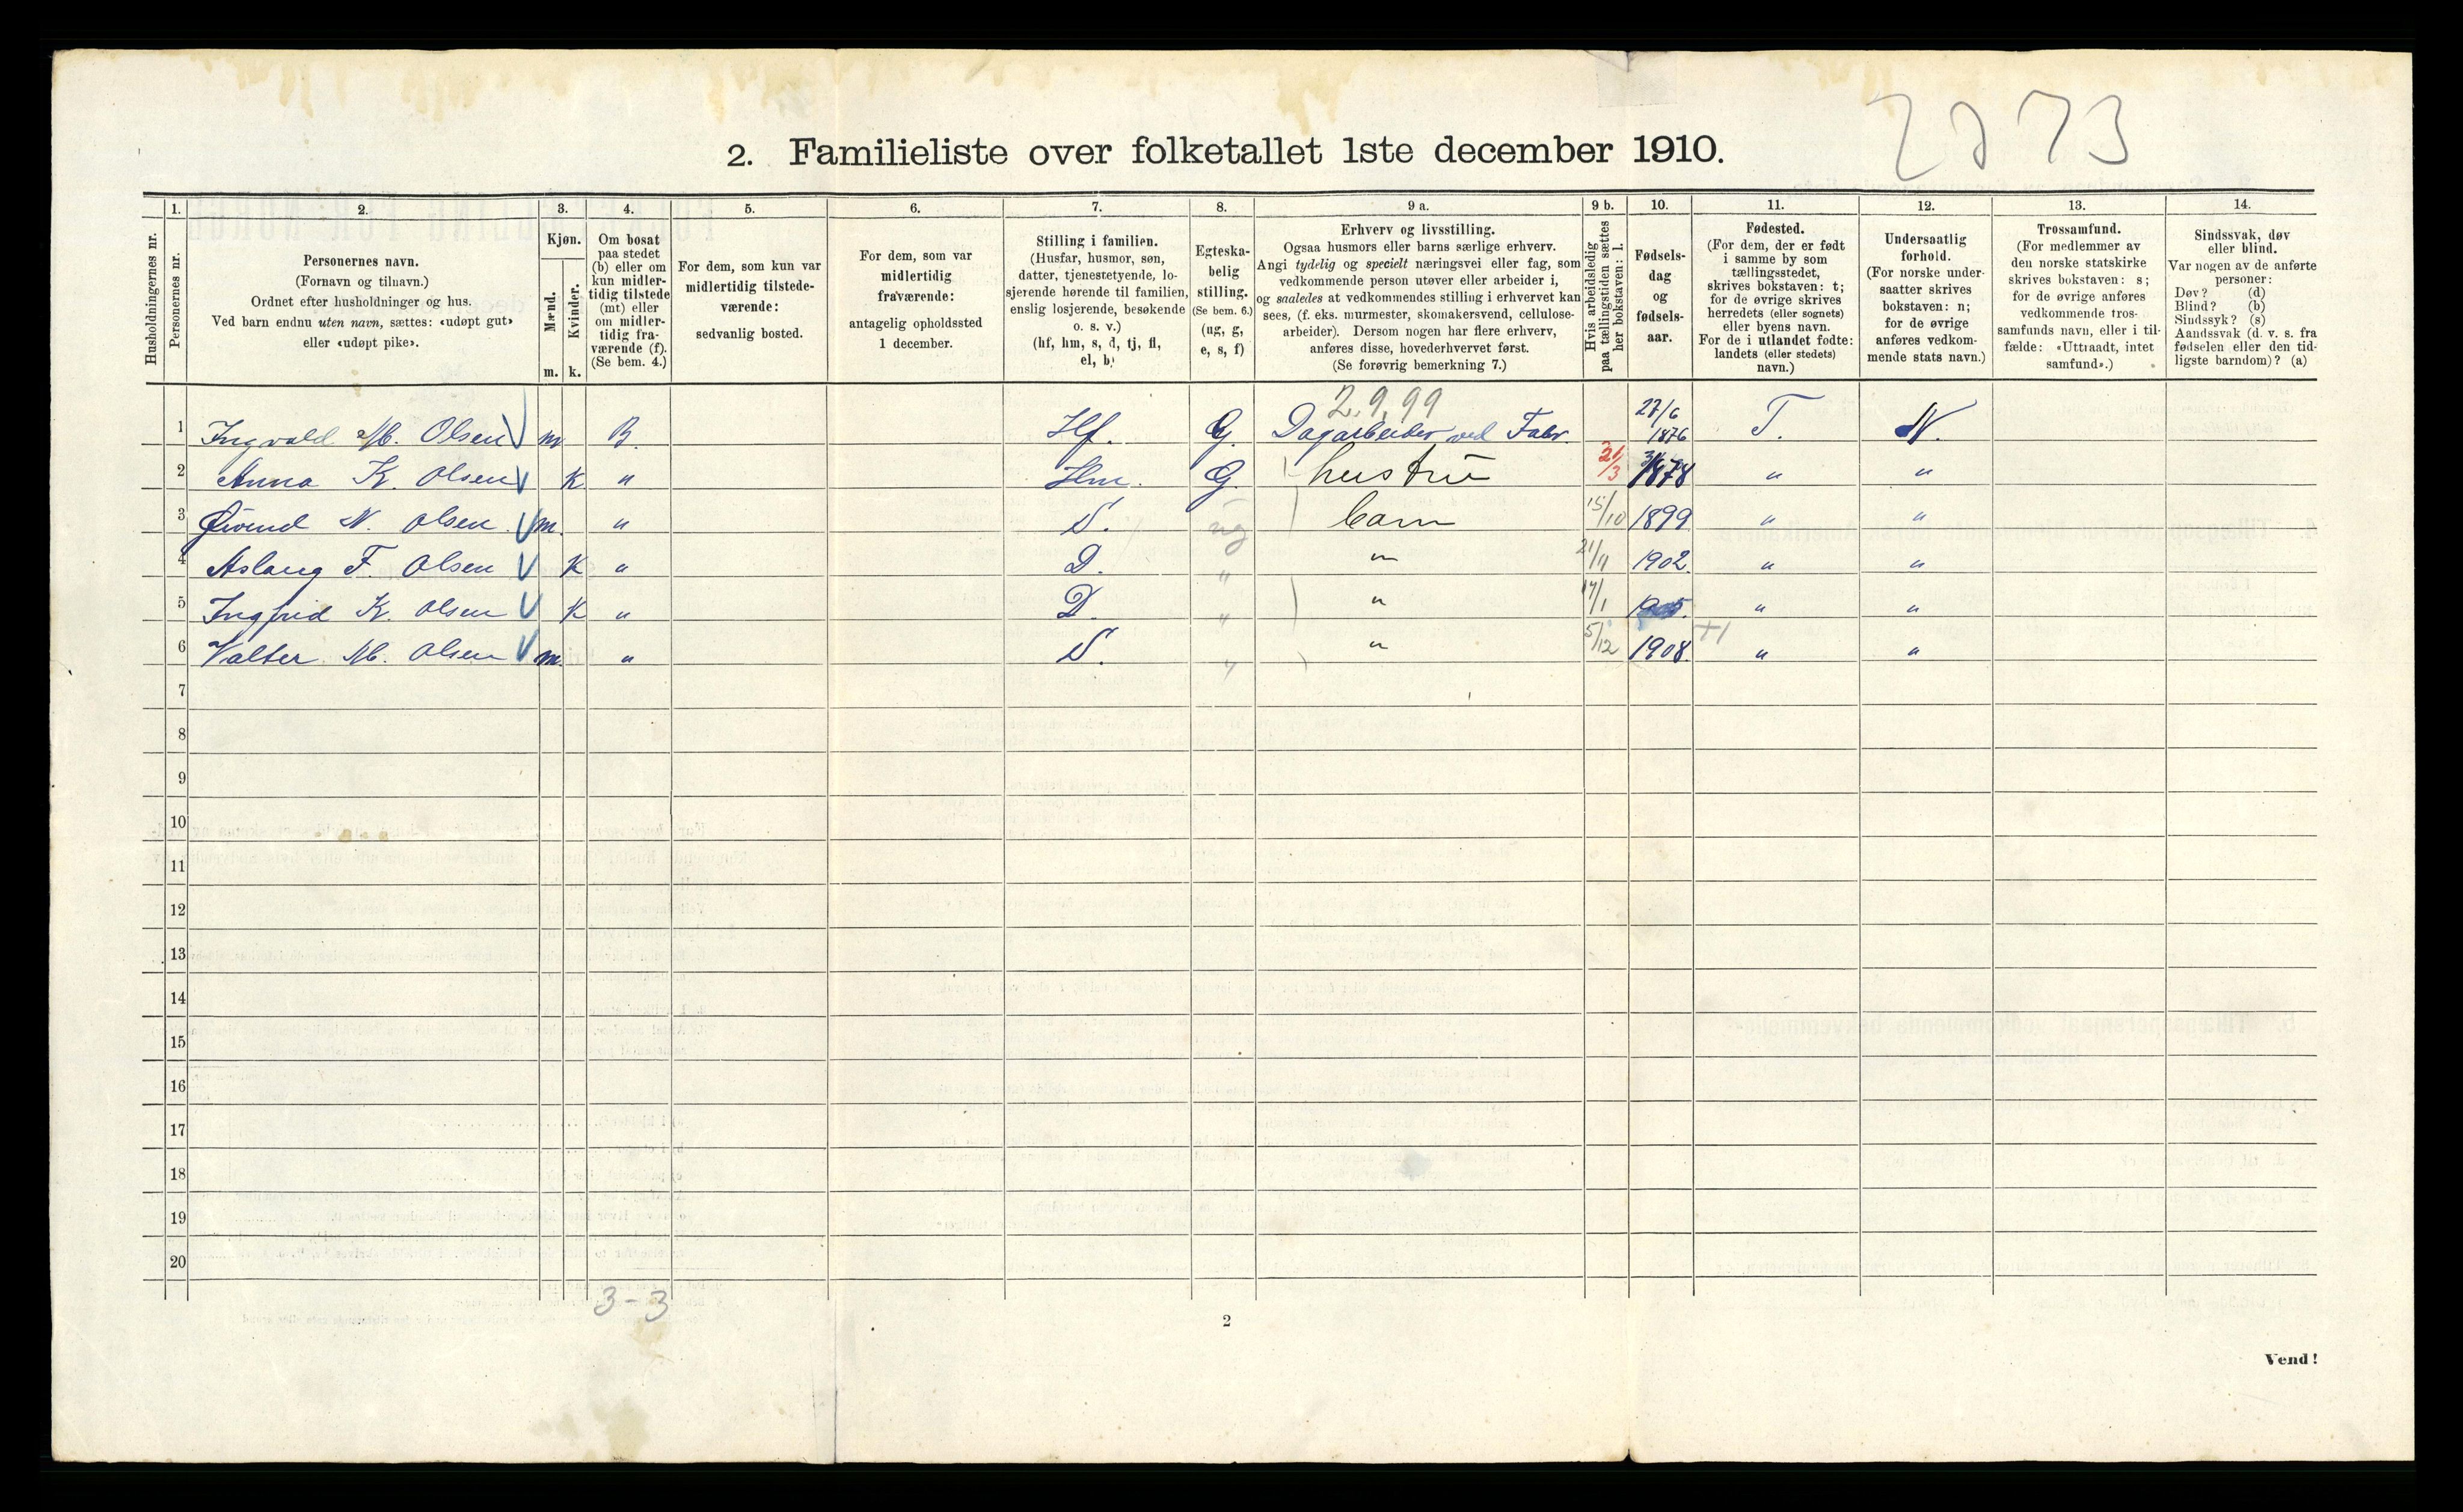 2873
2. Familieliste over folketallet 1ste december 1910.
1. 2. 3. 4. 5. 6. 7. 8. 9 a. 9 b. 10. 11. 12. 13. 14.
Husholdningernes nr.
Personernes nr.
Personernes navn.
(Fornavn og tilnavn.)
Ordnet efter husholdninger og hus.
Ved barn endnu uten navn, sættes: «udøpt gut»
eller «udøpt pike».
Kjøn.
Mænd.
Kvinder.
m. k.
Om bosat
paa stedet
(b) eller om
kun midler-
tidig tilstede
(mt) eller
om midler-
tidig fra-
værende (f).
(Se bem. 4.)
For dem, som kun var
midlertidig tilstede-
værende:
sedvanlig bosted.
For dem, som var
midlertidig
fraværende:
antagelig opholdssted
1 december.
Stilling i familien.
(Husfar, husmor, søn,
datter, tjenestetyende, lo-
sjerende hørende til familien,
enslig losjerende, besøkende
o. s. v.)
(hf, hm, s, d, tj, fl,
el, b)
Egteska-
belig
stilling.
(Se bem. 6.)
(ug, g,
e, s, f)
Erhverv og livsstilling.
Ogsaa husmors eller barns særlige erhverv.
Angi tydelig og specielt næringsvei eller fag, som
vedkommende person utøver eller arbeider i,
og saaledes at vedkommendes stilling i erhvervet kan
sees, (f. eks. murmester, skomakersvend, cellulose-
arbeider). Dersom nogen har flere erhverv,
anføres disse, hovederhvervet først.
(Se forøvrig bemerkning 7.)
Hvis arbeidsledig
paa tællingstiden sættes
her bokstaven: l.
Fødsels-
dag
og
fødsels-
aar.
Fødested.
(For dem, der er født
i samme by som
tællingsstedet,
skrives bokstaven: t;
for de øvrige skrives
herredets (eller sognets)
eller byens navn.
For de i utlandet fødte:
landets (eller stedets)
navn.)
Undersaatlig
forhold.
(For norske under-
saatter skrives
bokstaven: n;
for de øvrige
anføres vedkom-
mende stats navn.)
Trossamfund.
(For medlemmer av
den norske statskirke
skrives bokstaven: s;
for de øvrige anføres
vedkommende tros-
samfunds navn, eller i til-
fælde: «Uttraadt, intet
samfund».)
Sindssvak, døv
eller blind.
Var nogen av de anførte
personer:
Døv? (d)
Blind? (b)
Sindssyk? (s)
Aandssvak (d. v. s. fra
fødselen eller den tid-
ligste barndom)? (a)
2.9.99
1 Ingvald M. Olsen m B. Hf. G. Dagarbeider ved Fabr. 27/6 1876 T. N.
2 Anna K. Olsen K " Hm. G. hustru 21/3 1878 " "
3 Øivind N. Olsen m. " S. ug barn 15/10 1899 " "
4 Aslaug F. Olsen K " D. " " 21/11 1902. " "
5 Ingfrid K. Olsen K " D. " " 14/1 1905. " "
6 Valter M. Olsen m. " S. " " 5/12 1908. +1 " "
7
8
9
10
11
12
13
14
15
16
17
18
19
20
3-3
2
Vend!